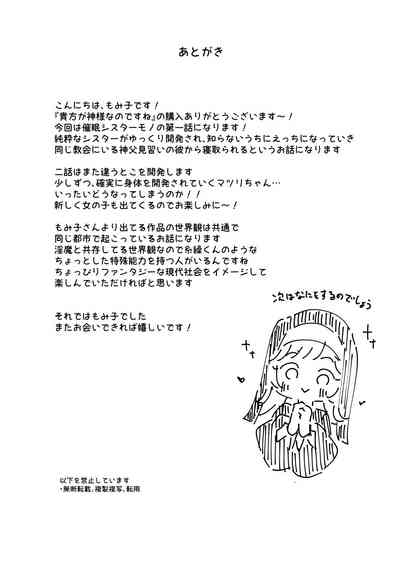 あとがき
こんにちは、もみ子です！
『貴方が神様なのですね』の購入ありがとうございます〜！
今回は催眠シスターモノの第一話になります！
純粋なシスターがゆっくり開発され、知らないうちにえっちになっていき
同じ教会にいる神父見習いの彼から寝取られるというお話になります
二話はまた違うとこを開発します
少しずつ、確実に身体を開発されていくマツリちゃん…
いったいどうなってしまうのか！！
新しく女の子も出てくるのでお楽しみに〜！
もみ子さんより出てる作品の世界観は共通で
同じ都市で起こっているお話になります
淫魔と共存してる世界観なので糸縁くんのような
ちょっとした特殊能力を持つ人がいるんですね
ちょっぴりファンタジーな現代社会をイメージして
楽しんでいただければと思います
次はなにをするのでしょう
それではもみ子でした
またお会いできれば嬉しいです！
以下を禁止しています
・無断転載、複製複写、転用